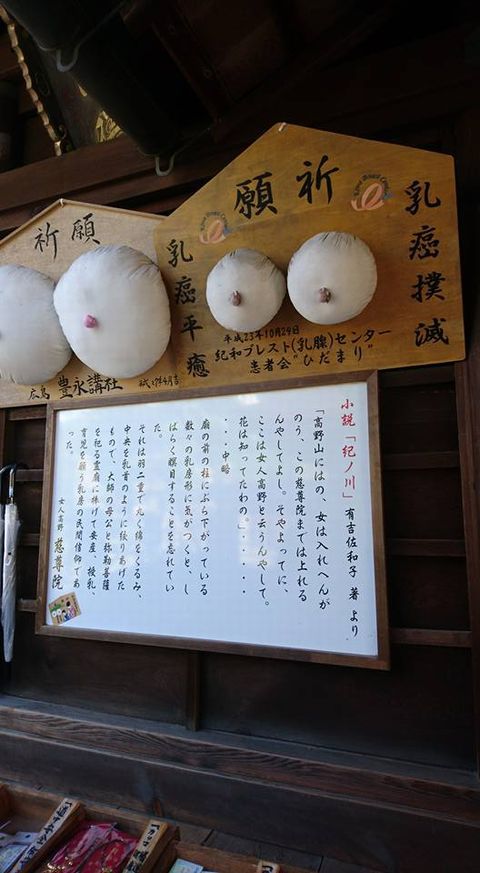 祈願
乳癌撲滅
平成23年10月24日
紀和ブレスト(乳腺)センター
患者会"ひだまり"
祈願
乳癌平癒
広島 豊永講社
小説「紀ノ川」 有吉佐和子 著 より
「高野山にはの、女は入れへんが
のう、この慈尊院までは上れる
んやしてよし。そやよってに、
ここは女人高野と云うんやして。
花は知ってたわの。」・・・・
・・・中略
廟の前の柱にぶら下がっている
数々の乳房形に気がつくと、し
ばらく瞑目することを忘れてい
た。
それは羽二重で丸く綿をくるみ、
中央を乳首のように絞りあげた
もので、大師の母公と弥勒菩薩
を祀る霊廟に捧げて安産、授乳、
育児を願う乳房の民間信仰であ
った。
女人高野 慈尊院